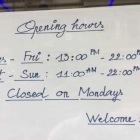 Opening hours
- Fri : 13:00 PM - 22:00
- Sun : 11:00 AM - 22:00
Closed on Mondays
Welcome